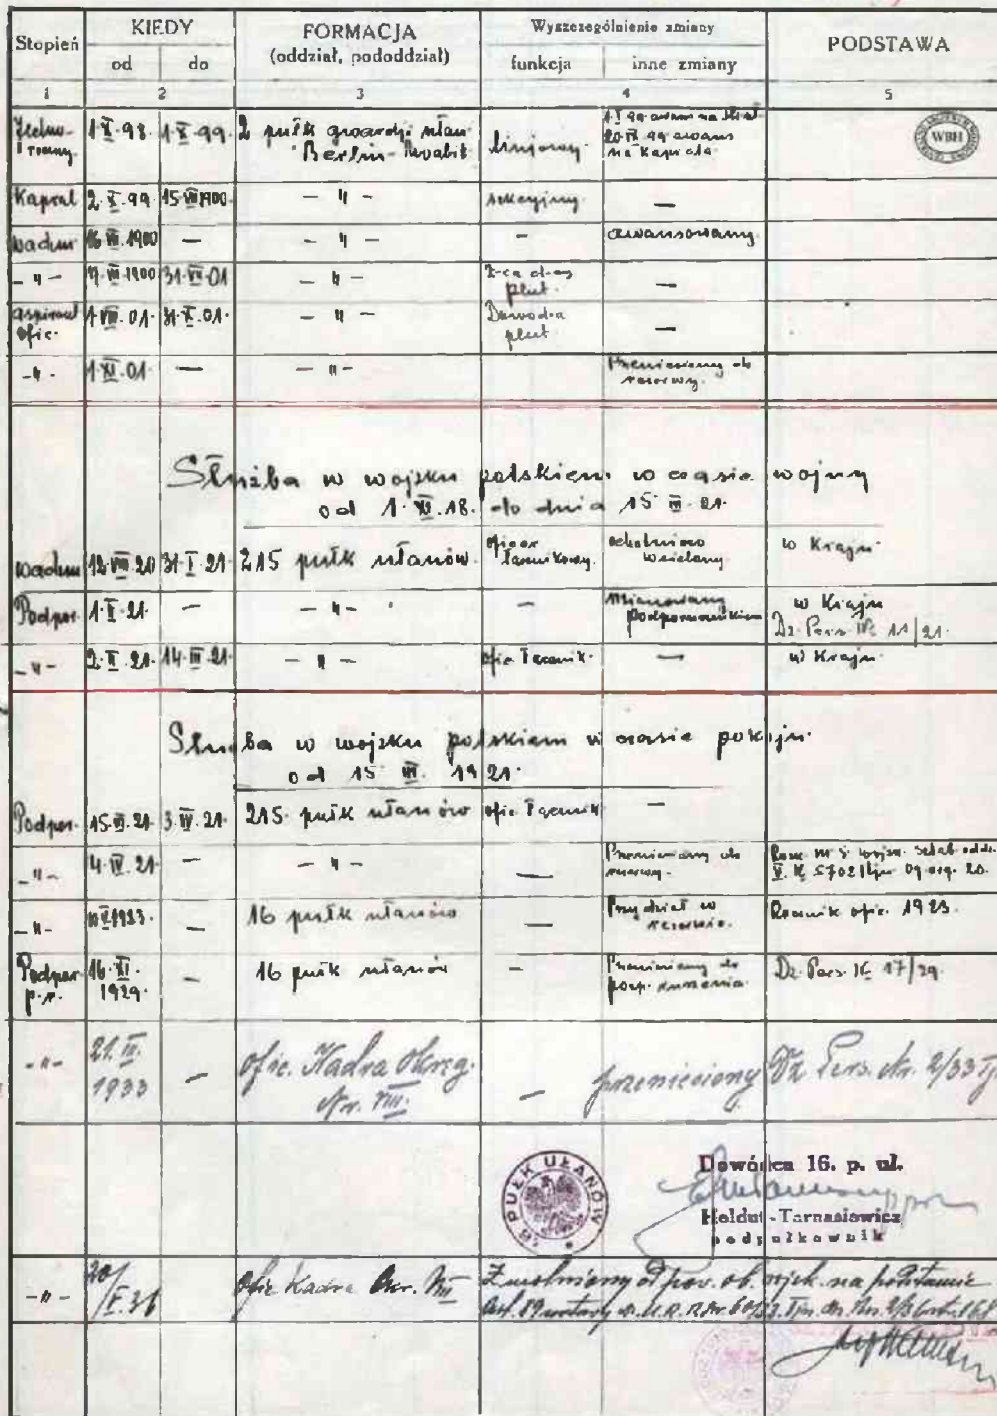 Stopień KIEDY FORMACJA (oddział, pododdział) Wyszczególnienie zmiany PODSTAWA
od do funkcja inne zmiany
1 2 3 4 5
Jedno- 1·X·98· 1·X·99· 2 pułk gwardji ułan liniowy 1·X·99 awans na
roczny Berlin-Moabit 20·IX·99 awans
na Kaprala
WBH
Kapral 2·X·99· 15·VIII·1900· — " — sekcyjny —
wachm 16·VIII·1900 — — " — — awansowany
— " — 17·VIII·1900 31·VII·01 — " — Z-ca d-cy plut. —
aspirant ofic. 1·VIII·01· 31·X·01· — " — Dowódca plut —
— " — 1·XI·01· — — " — Przeniesiony do rezerwy.
Służba w wojsku polskiem w czasie wojny
od 1·XI·18· do dnia 15·III·21·
wachm 12·VIII·20 31·I·21· 215 pułk ułanów oficer łącznikowy. ochotniczo wcielony w Kraju
Podpor. 1·II·21· — — " — — Mianowany podporucznikiem w Kraju
Dz. Pers. № 11/21.
— " — 2·II·21· 14·III·21· — " — ofic łącznik· — w Kraju
Służba w wojsku polskiem w czasie pokoju
od 15 III. 1921·
Podpor. 15·III·21· 3·IV·21· 215 pułk ułanów ofic łącznik —
— " — 4·IV·21· — — " — — Przeniesiony do rezerwy. Rozk. M. S. Wojsk. Sztab oddz.
V. № 5702 org. 20.
— " — 1923· — 16 pułk ułanów Przydział w rezerwie. Rocznik ofic. 1923.
Podpor 16·XI· — 16 pułk ułanów — Przeniesiony do Dz. Pers. № 17/29.
p.r. 1929· posp. ruszenia
— " — 21. III. 1933 — ofic. Kadra Okręg. Nr. VIII. — przeniesiony Dz Pers. Nr. 2/33
16 PUŁK UŁANÓW
Dowódca 16. p. uł.
Heldut-Tarnasiewicz
podpułkownik
— " — Ofic Kadra Okr. VIII Zwolniony od pow. ob. wojsk. na podstawie
Art. 89 ustawy